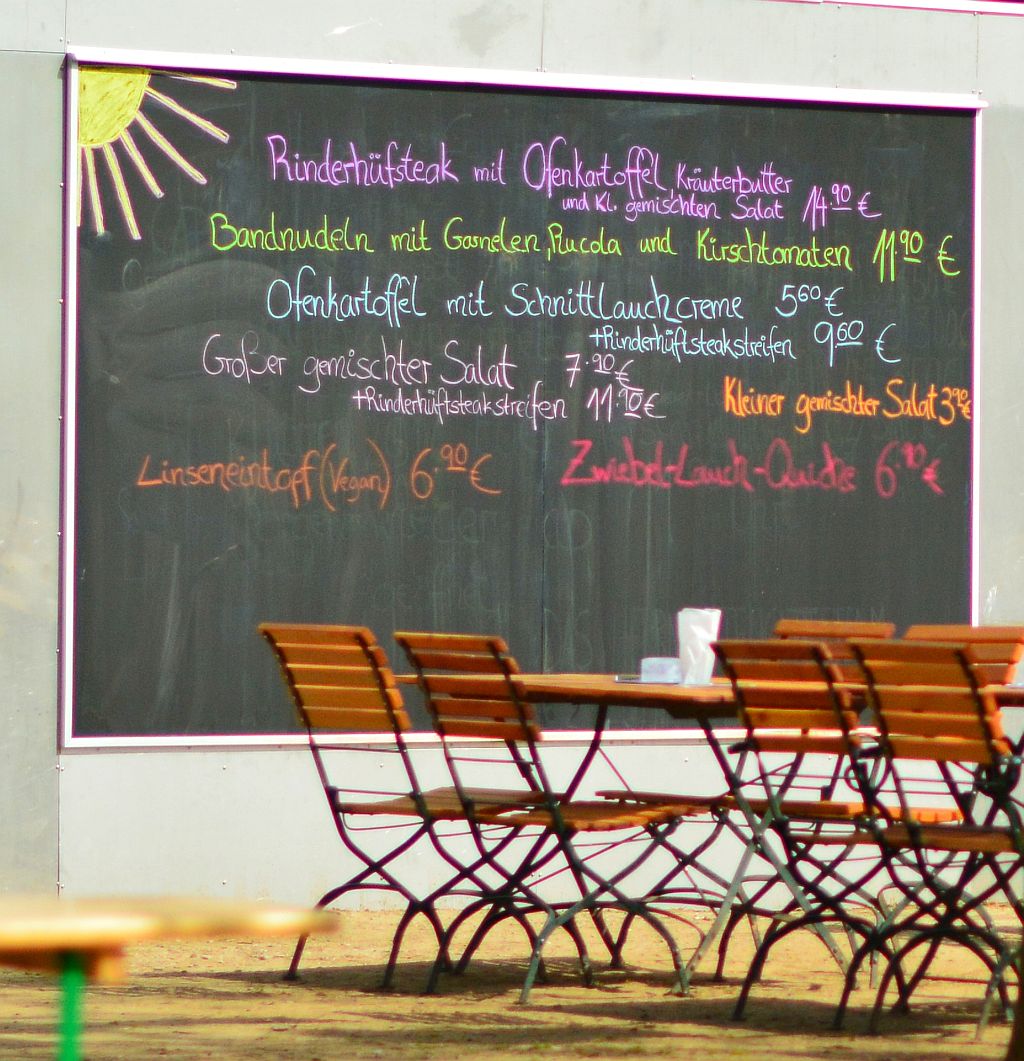 Rinderhüfsteak mit Ofenkartoffel, Kräuterbutter
und Kl. gemischten Salat 14.90 €
Bandnudeln mit Garnelen, Rucola und Kirschtomaten 11.90 €
Ofenkartoffel mit Schnittlauchcreme 5 60 €
+Rinderhüftsteakstreifen 9.60 €
Großer gemischter Salat 7.90 €
+Rinderhüftsteakstreifen 11.90 €
Kleiner gemischter Salat 3 90 €
Linseneintopf (Vegan) 6.90 €
Zwiebel-Lauch-Quiche 6.90 €